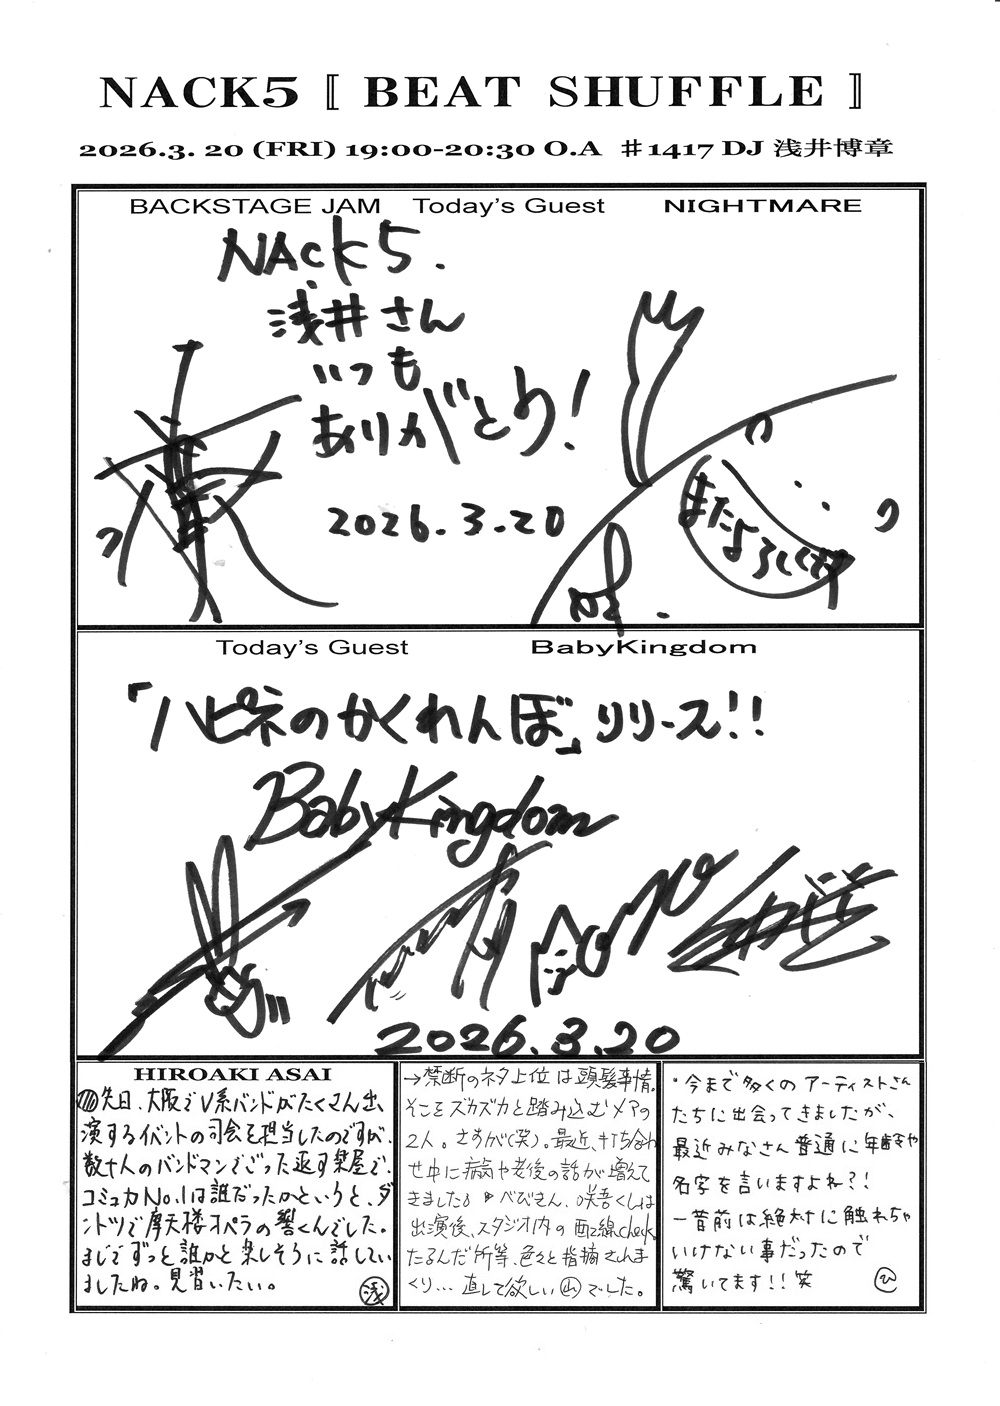 NACK5 『 BEAT SHUFFLE 』
2026.3. 20 (FRI) 19:00-20:30 O.A ♯1417 DJ 浅井博章
BACKSTAGE JAM Today's Guest NIGHTMARE
NACK5.
浅井さん
いつも
ありがとう!
2026.3.20
またよろしくです
Today's Guest BabyKingdom
「ハピネのかくれんぼ」リリース!!
BabyKingdom
2026.3.20
HIROAKI ASAI
先日、大阪でV系バンドがたくさん出
演するイベントの司会を担当したのですが、
数十人のバンドマンでごった返す楽屋で、
コミュ力No.1は誰だったかというと、ダ
ントツで摩天楼オペラの響くんでした。
まじでずっと誰かと楽しそうに話してい
ましたね。見習いたい。 浅
→禁断のネタ上位は頭髪事情。
そこをズカズカと踏み込むメアの
2人。さすが(笑)。最近、打ち合わ
せ中に病気や老後の話が増えて
きました。べびきん、咲吾くんは
出演後、スタジオ内の配線check。
たるんだ所等、色々と指摘されま
くり…直して欲しい 山 でした。
・今まで多くのアーティストさん
たちに出会ってきましたが、
最近みなさん普通に年齢や
名字を言いますよね?!
一昔前は絶対に触れちゃ
いけない事だったので
驚いてます!!笑 ひ